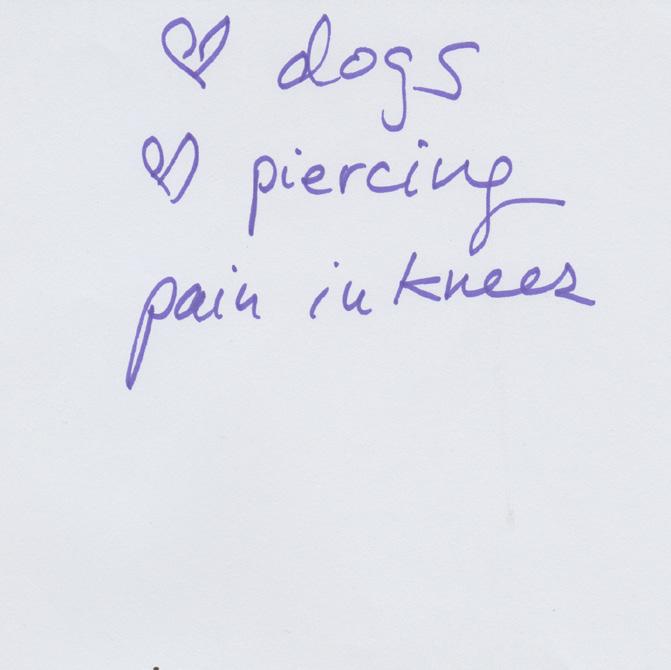 ♡ dogs
♡ piercing
pain in knees